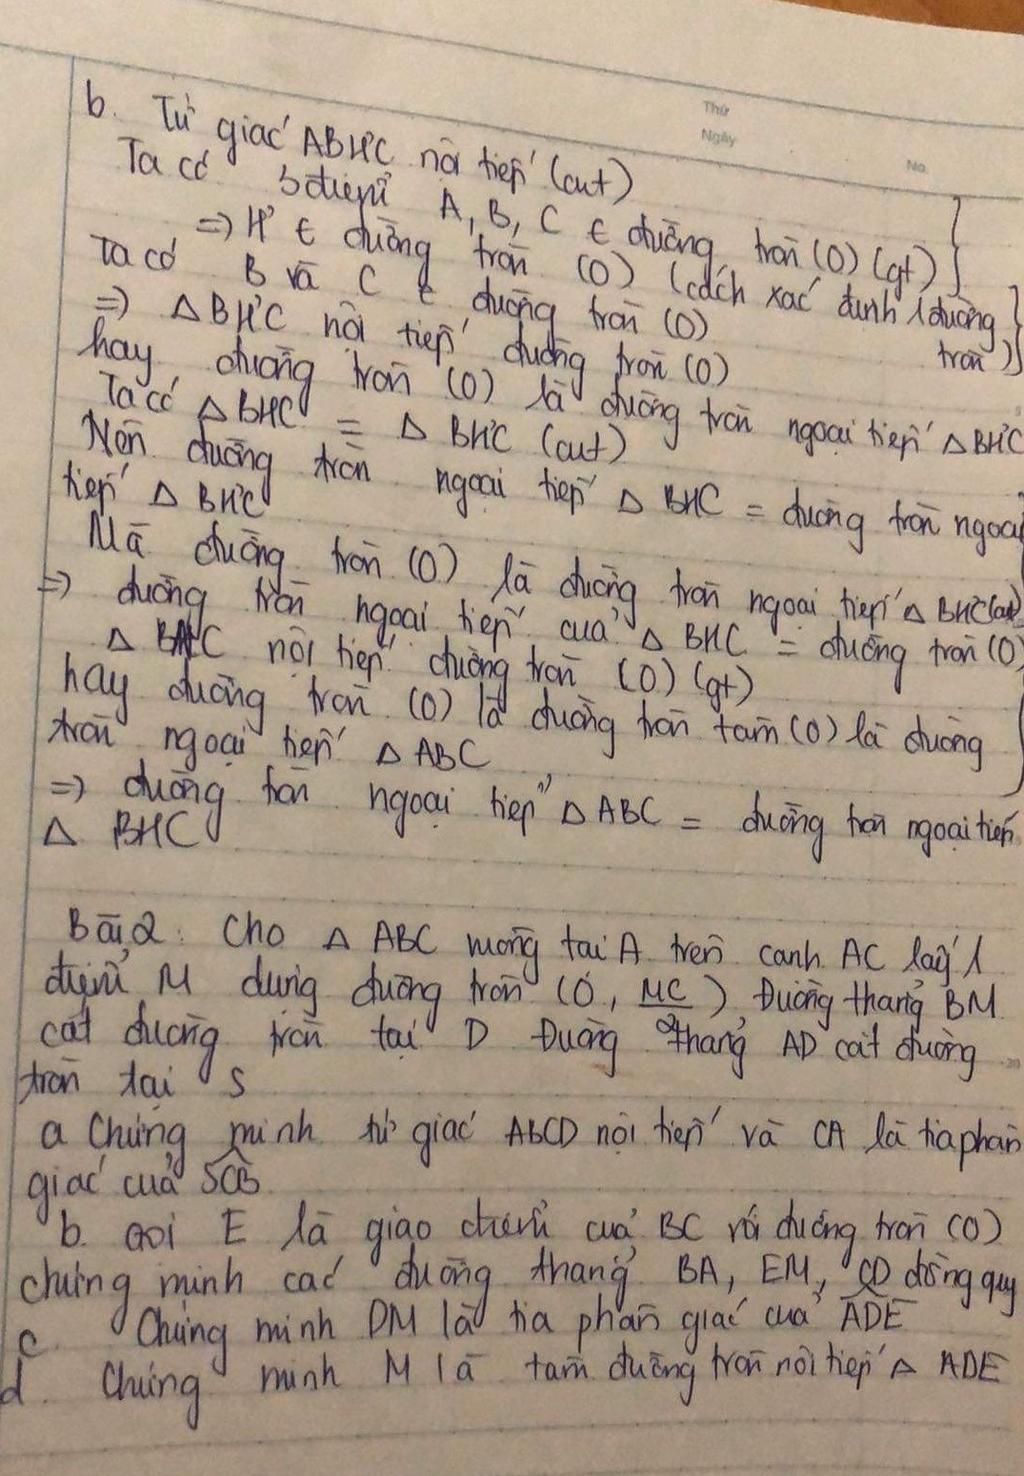 Thứ
Ngày
No.
b. Tứ giác ABH'C nội tiếp (cmt)
Ta có 3 điểm A, B, C ∈ đường tròn (O) (gt)
=> H' ∈ đường tròn (O) (cách xác định 1 đường tròn)
Ta có B và C ∈ đường tròn (O)
=> △BH'C nội tiếp đường tròn (O)
hay đường tròn (O) là đường tròn ngoại tiếp △BH'C
Ta có △BHC = △BH'C (cmt)
Nên đường tròn ngoại tiếp △BHC = đường tròn ngoại
tiếp △BH'C
Mà đường tròn (O) là đường tròn ngoại tiếp △BH'C
=> đường tròn ngoại tiếp của △BHC = đường tròn (O)
△BAC nội tiếp đường tròn (O) (gt)
hay đường tròn (O) là đường tròn tâm (O) là đường
tròn ngoại tiếp △ABC
=> đường tròn ngoại tiếp △ABC = đường tròn ngoại tiếp
△BHC
Bài 2: Cho △ABC vuông tại A trên cạnh AC lấy 1
điểm M dựng đường tròn (O, MC/2) Đường thẳng BM
cắt đường tròn tại D Đường thẳng AD cắt đường
tròn tại S
a Chứng minh tứ giác ABCD nội tiếp và CA là tia phân
giác của SCB
b. Gọi E là giao điểm của BC với đường tròn (O)
chứng minh các đường thẳng BA, EM, CD đồng quy
c. Chứng minh DM là tia phân giác của ADE
d. Chứng minh M là tâm đường tròn nội tiếp △ADE